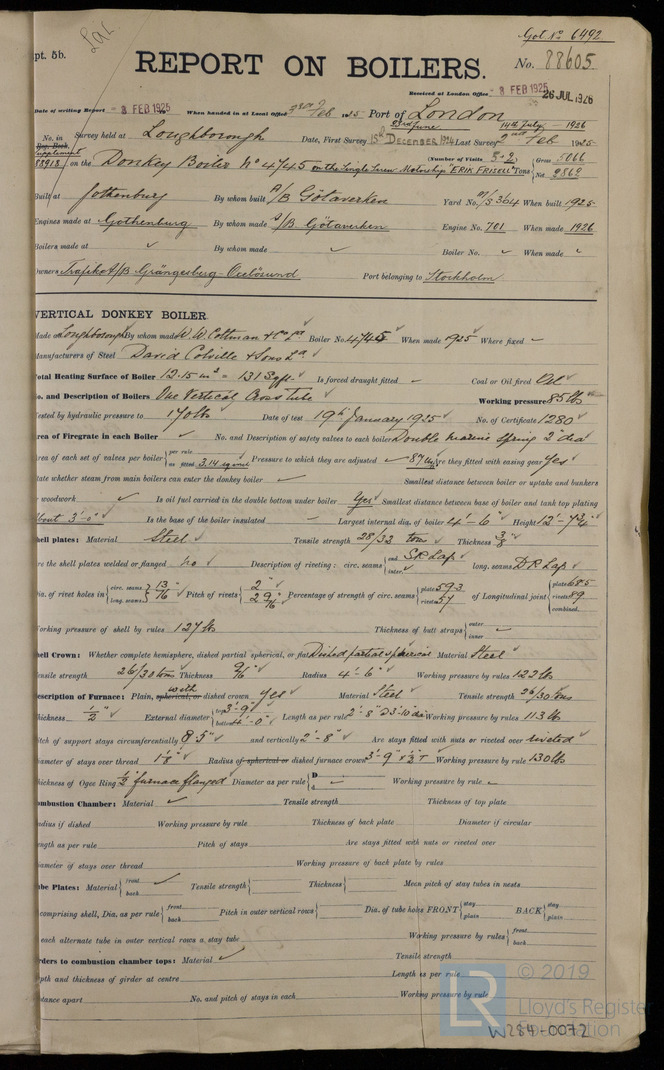 Got. No 6492
pt. 5b.
REPORT ON BOILERS.
No. 88605
Received at London Office 8 FEB 1925
26 JUL 1926
Date of writing Report 3 FEB 1925 When handed in at Local Office 3rd Feb 1925 Port of London
No. in Reg. Book. Survey held at Loughborough Date, First Survey 15th DECEMBER 1924 Last Survey 2nd Feb 1925
23rd June 14th July 1926
Supplement
88918 on the Donkey Boiler No 4745 on the Single Screw Motorship "ERIK FRISELL" Tons Gross 5066 Net 2862
(Number of Visits 3-2)
Built at Gothenburg By whom built A/B Götaverken Yard No. 364 When built 1925
Engines made at Gothenburg By whom made A/B Götaverken Engine No. 701 When made 1926
Boilers made at By whom made Boiler No. When made
Owners Trafik A/B Grängesberg-Oxelösund Port belonging to Stockholm
VERTICAL DONKEY BOILER.
Made on Loughborough By whom made W. W. Coltman & Co Ld Boiler No. 4745 When made 1925 Where fixed
Manufacturers of Steel David Colville & Sons Ld
Total Heating Surface of Boiler 12.15 m² = 131 Sq ft Is forced draught fitted Coal or Oil fired Oil
No. and Description of Boilers One Vertical Cross tube Working pressure 85 lbs
Tested by hydraulic pressure to 170 lbs Date of test 19th January 1925 No. of Certificate 1280
Area of Firegrate in each Boiler No. and Description of safety valves to each boiler Double marine spring 2" dia
Area of each set of valves per boiler per rule as fitted 3.14 sq ins Pressure to which they are adjusted 87 lbs Are they fitted with easing gear Yes
State whether steam from main boilers can enter the donkey boiler Smallest distance between boiler or uptake and bunkers
or woodwork Is oil fuel carried in the double bottom under boiler Yes Smallest distance between base of boiler and tank top plating
About 3'-0" Is the base of the boiler insulated Largest internal dia. of boiler 4'-6" Height 12'-7¾"
Shell plates: Material Steel Tensile strength 28/32 tons Thickness 3/8"
Are the shell plates welded or flanged no Description of riveting: circ. seams end SR Lap inter. long. seams DR Lap
Dia. of rivet holes in circ. seams long. seams 13/16" Pitch of rivets 2" 2 9/16" Percentage of strength of circ. seams plate 59.3 rivets 57 of Longitudinal joint plate 68.5 rivets 89 combined
Working pressure of shell by rules 127 lbs Thickness of butt straps outer inner
Shell Crown: Whether complete hemisphere, dished partial spherical, or flat Dished partial spherical Material Steel
Tensile strength 26/30 tons Thickness 9/16" Radius 4'-6" Working pressure by rules 122 lbs
Description of Furnace: Plain, spherical, or with dished crown yes Material Steel Tensile strength 26/30 tons
Thickness ½" External diameter top 3'-9" bottom 4'-0" Length as per rule 2'-8" Working pressure by rules 113 lbs
Pitch of support stays circumferentially 8.5" and vertically 2'-8" Are stays fitted with nuts or riveted over riveted
Diameter of stays over thread 1 1/8" Radius of spherical or dished furnace crown 3'-9" Working pressure by rule 130 lbs
Thickness of Ogee Ring ½" furnace flanged Diameter as per rule D d Working pressure by rule
Combustion Chamber: Material Tensile strength Thickness of top plate
Radius if dished Working pressure by rule Thickness of back plate Diameter if circular
Length as per rule Pitch of stays Are stays fitted with nuts or riveted over
Diameter of stays over thread Working pressure of back plate by rules
Tube Plates: Material front back Tensile strength Thickness Mean pitch of stay tubes in nests
comprising shell, Dia. as per rule front back Pitch in outer vertical rows Dia. of tube holes FRONT stay plain BACK stay plain
each alternate tube in outer vertical rows a stay tube Working pressure by rules front back
Girders to combustion chamber tops: Material Tensile strength
Depth and thickness of girder at centre Length as per rule
Distance apart No. and pitch of stays in each Working pressure by rule
LR © 2019
Lloyd's Register
Foundation
W284-0072